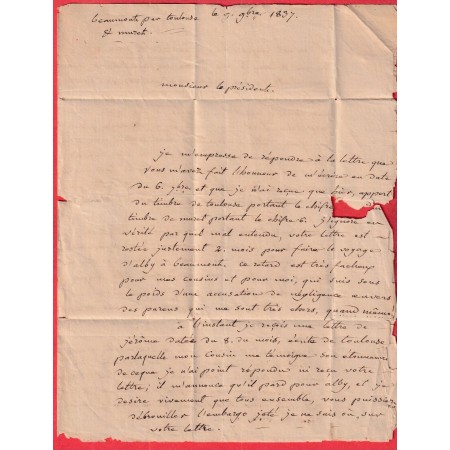 Beaumont par toulouse le 9 9bre 1837.
& muret.
monsieur le président.
je m'empresse de répondre à la lettre que
vous m'avez fait l'honneur de m'écrire en date
du 6. et que je n'ai reçue que hier, apport
du timbre de toulouse portant le chifre du
timbre de muret portant le chifre 6. j'ignore en
vérité par quel mal entendu, votre lettre est
restée justement 2. mois pour faire le voyage
d'alby à beaumont. ce retard est très facheux
pour mes cousins et pour moi, qui suis sous
le poids d'une accusation de négligence envers
des parens qui me sont très chers, quand même.
à l'instant je reçois une lettre de
jérôme datée du 8. du mois, écrite de toulouse
par laquelle mon cousin me témoigne son étonnement
de ce que je n'ai point répondu ni reçu votre
lettre; il m'annonce qu'il part pour alby, et je
desire vivement que tous ensemble, vous puissiez
débrouiller l'embargo jeté je ne sais où, sur
votre lettre.